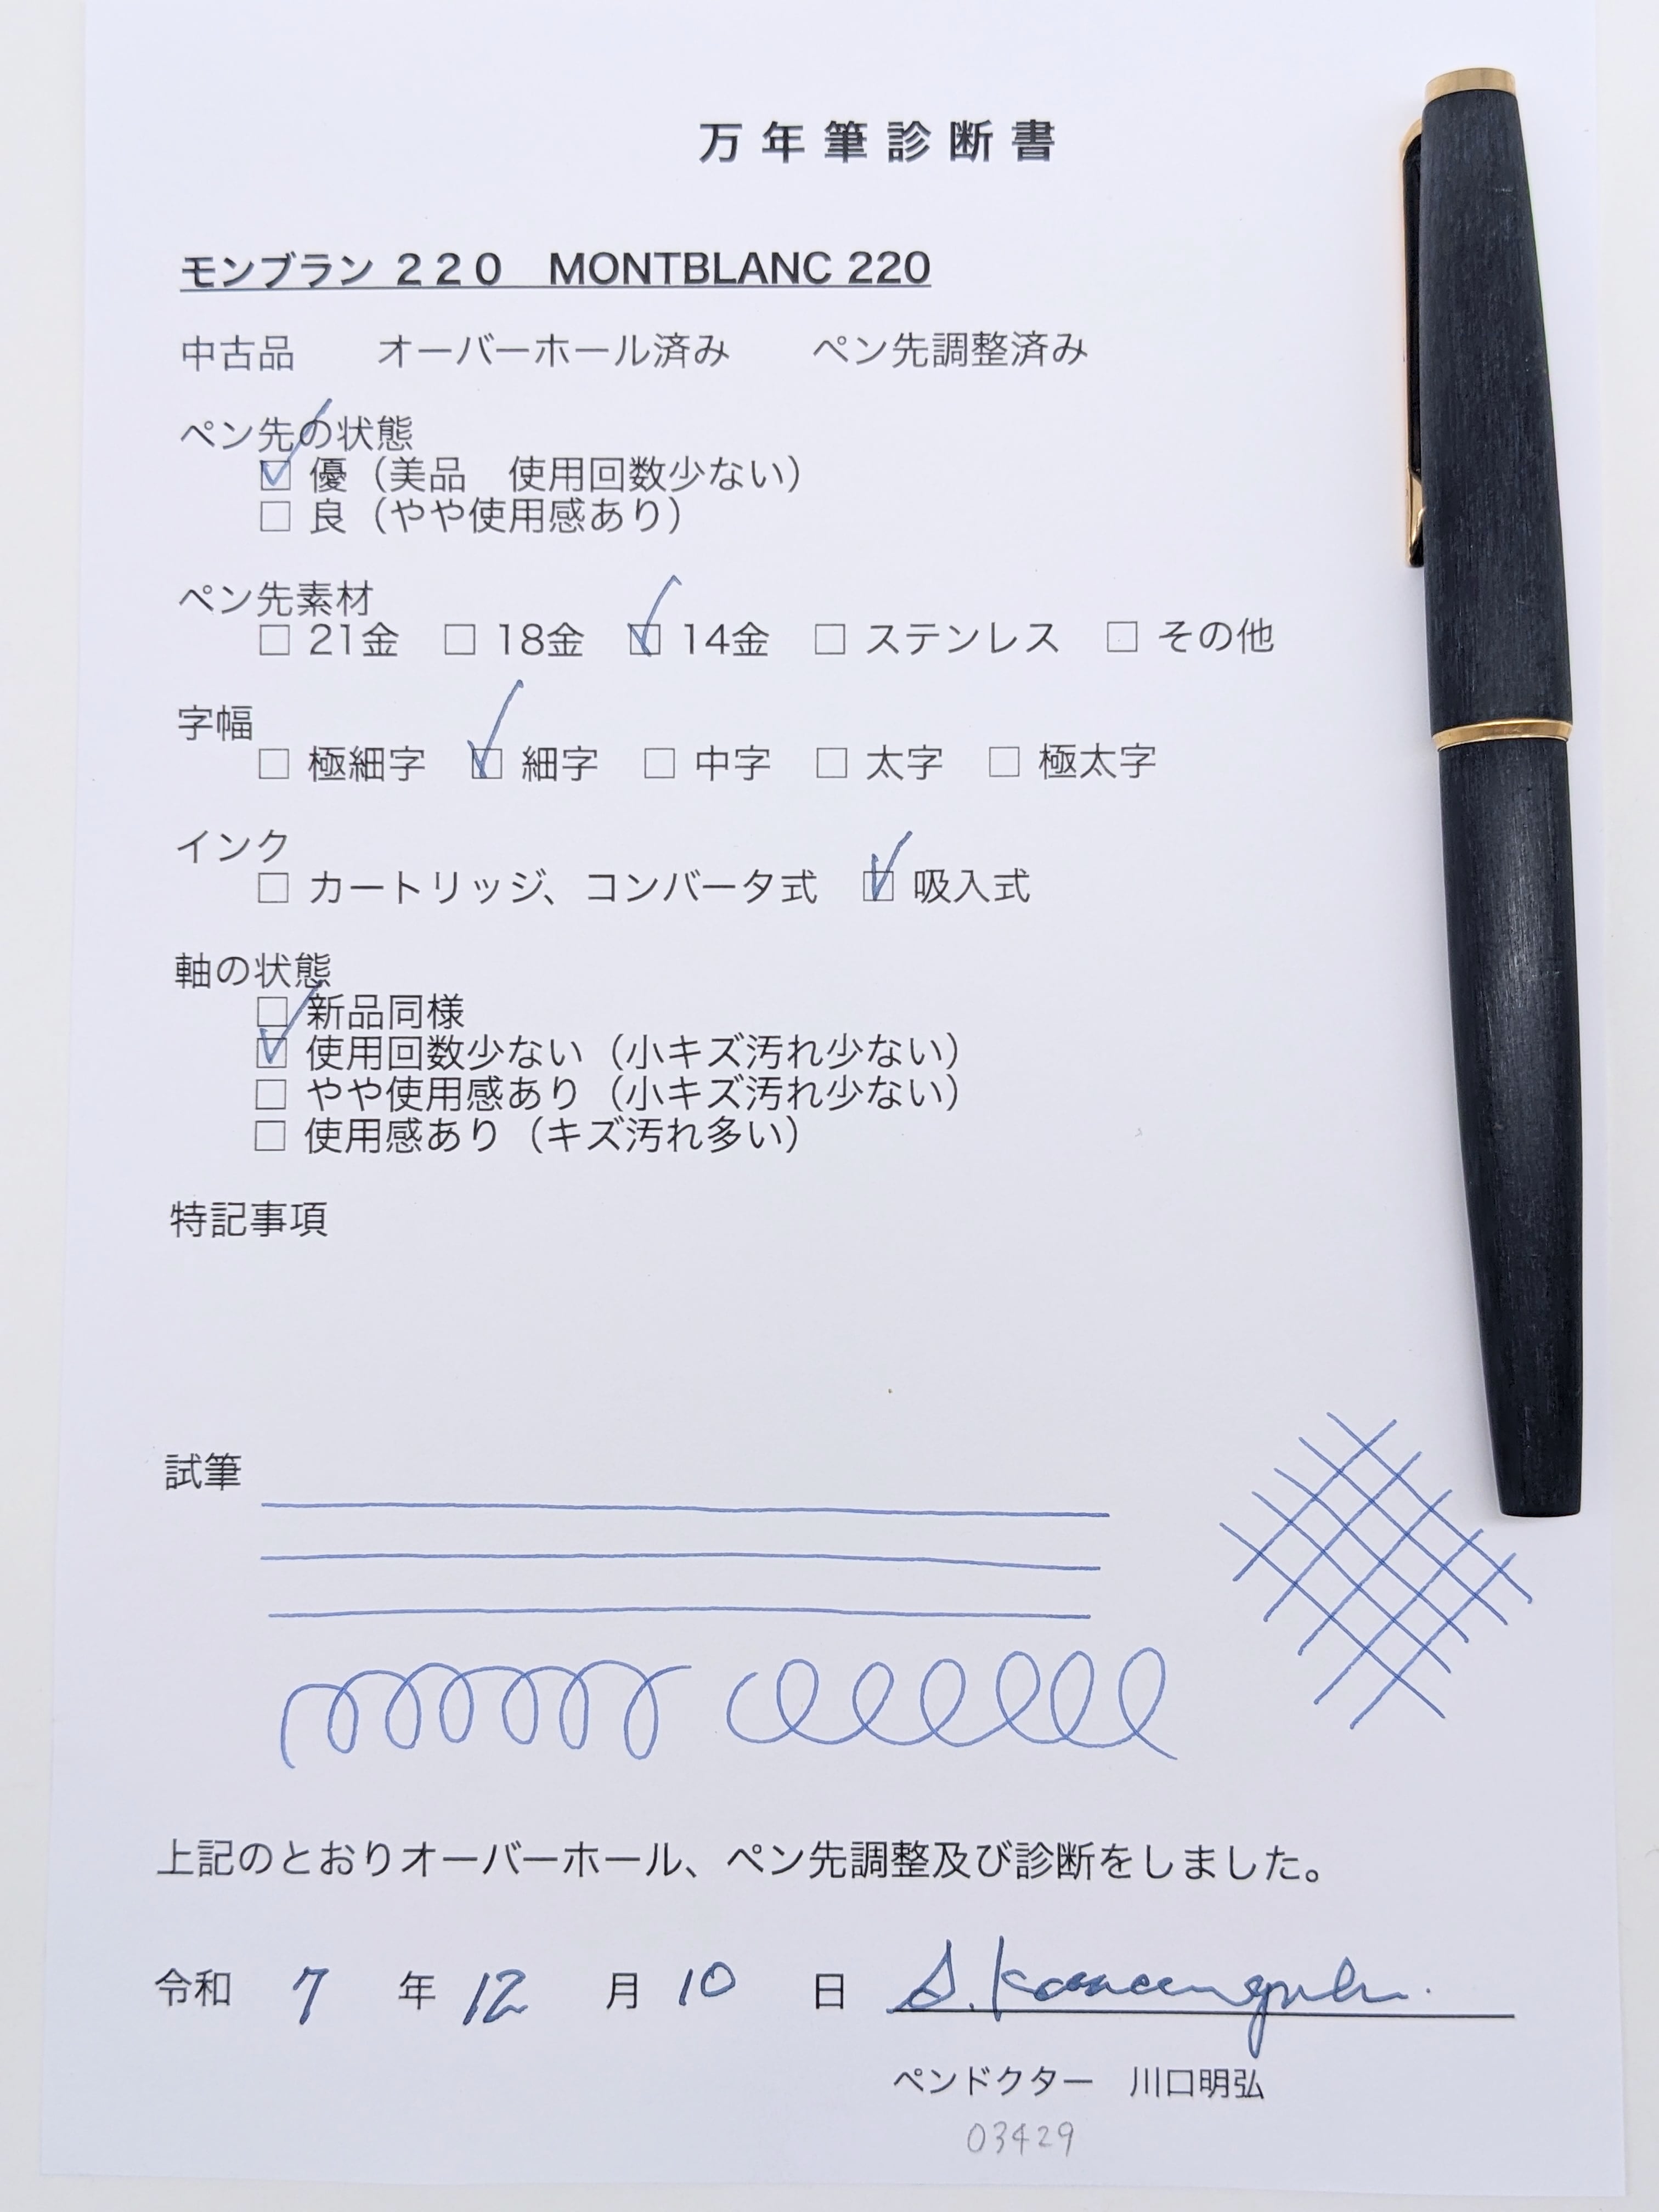 万年筆診断書
モンブラン ２２０　MONTBLANC 220
中古品　　オーバーホール済み　　ペン先調整済み
ペン先の状態
☑ 優（美品　使用回数少ない）
☐ 良（やや使用感あり）
ペン先素材
☐ 21金　☐ 18金　☑ 14金　☐ ステンレス　☐ その他
字幅
☐ 極細字　☑ 細字　☐ 中字　☐ 太字　☐ 極太字
インク
☐ カートリッジ、コンバータ式　☑ 吸入式
軸の状態
☐ 新品同様
☑ 使用回数少ない（小キズ汚れ少ない）
☐ やや使用感あり（小キズ汚れ少ない）
☐ 使用感あり（キズ汚れ多い）
特記事項
試筆
上記のとおりオーバーホール、ペン先調整及び診断をしました。
令和 7 年 12 月 10 日 
ペンドクター　川口明弘
03429